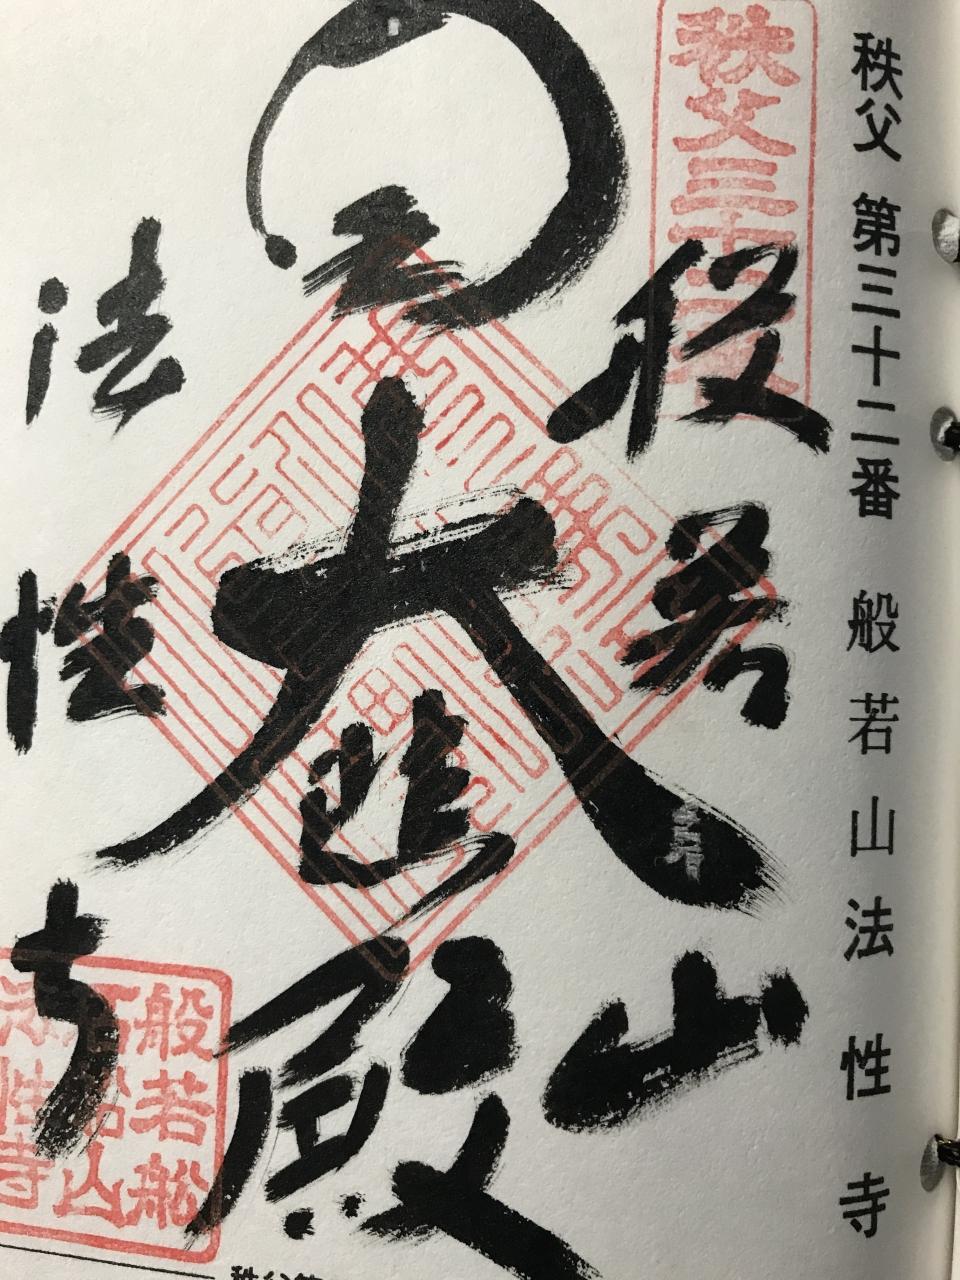 秩父 第三十二番 般若山法性寺
秩父三十二番
般若山
大悲殿
法性寺
般若船
石船山
法性寺
秩父第